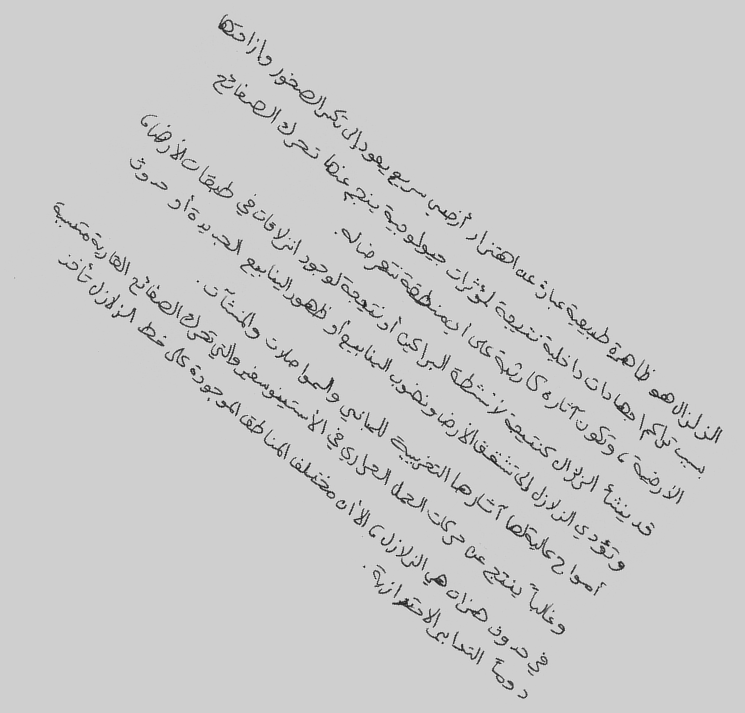 الزلزال هو ظاهرة طبيعية عبارة عن اهتزاز أرضي سريع يعود إلى تكسر الصخور وإزاحتها
بسبب تراكم اجهادات داخلية نتيجة لمؤثرات جيولوجية ينجم عنها تحرك الصفائح
الأرضية ، وتكون آثاره كارثية على أي منطقة تتعرض له.
قد ينشأ الزلزال كنتيجة لأنشطة البراكين أو نتيجة لوجود انزلاقات في طبقات الأرض ،
وتؤدي الزلازل إلى تشقق الأرض ونضوب الينابيع أو ظهور الينابيع الجديدة أو حدوث
أمواج عالية لها آثارها التخريبية للمباني والمواصلات والمنشآت .
وغالباً ينتج عن حركات الحمل الحراري في الأستينوسفير والتي تحرك الصفائح القارية متسببة
في حدوث هزات هي الزلازل ، إلا أن مختلف المناطق الموجودة على خط الزلازل تأخذ
دوماً التدابير الاحترازية .